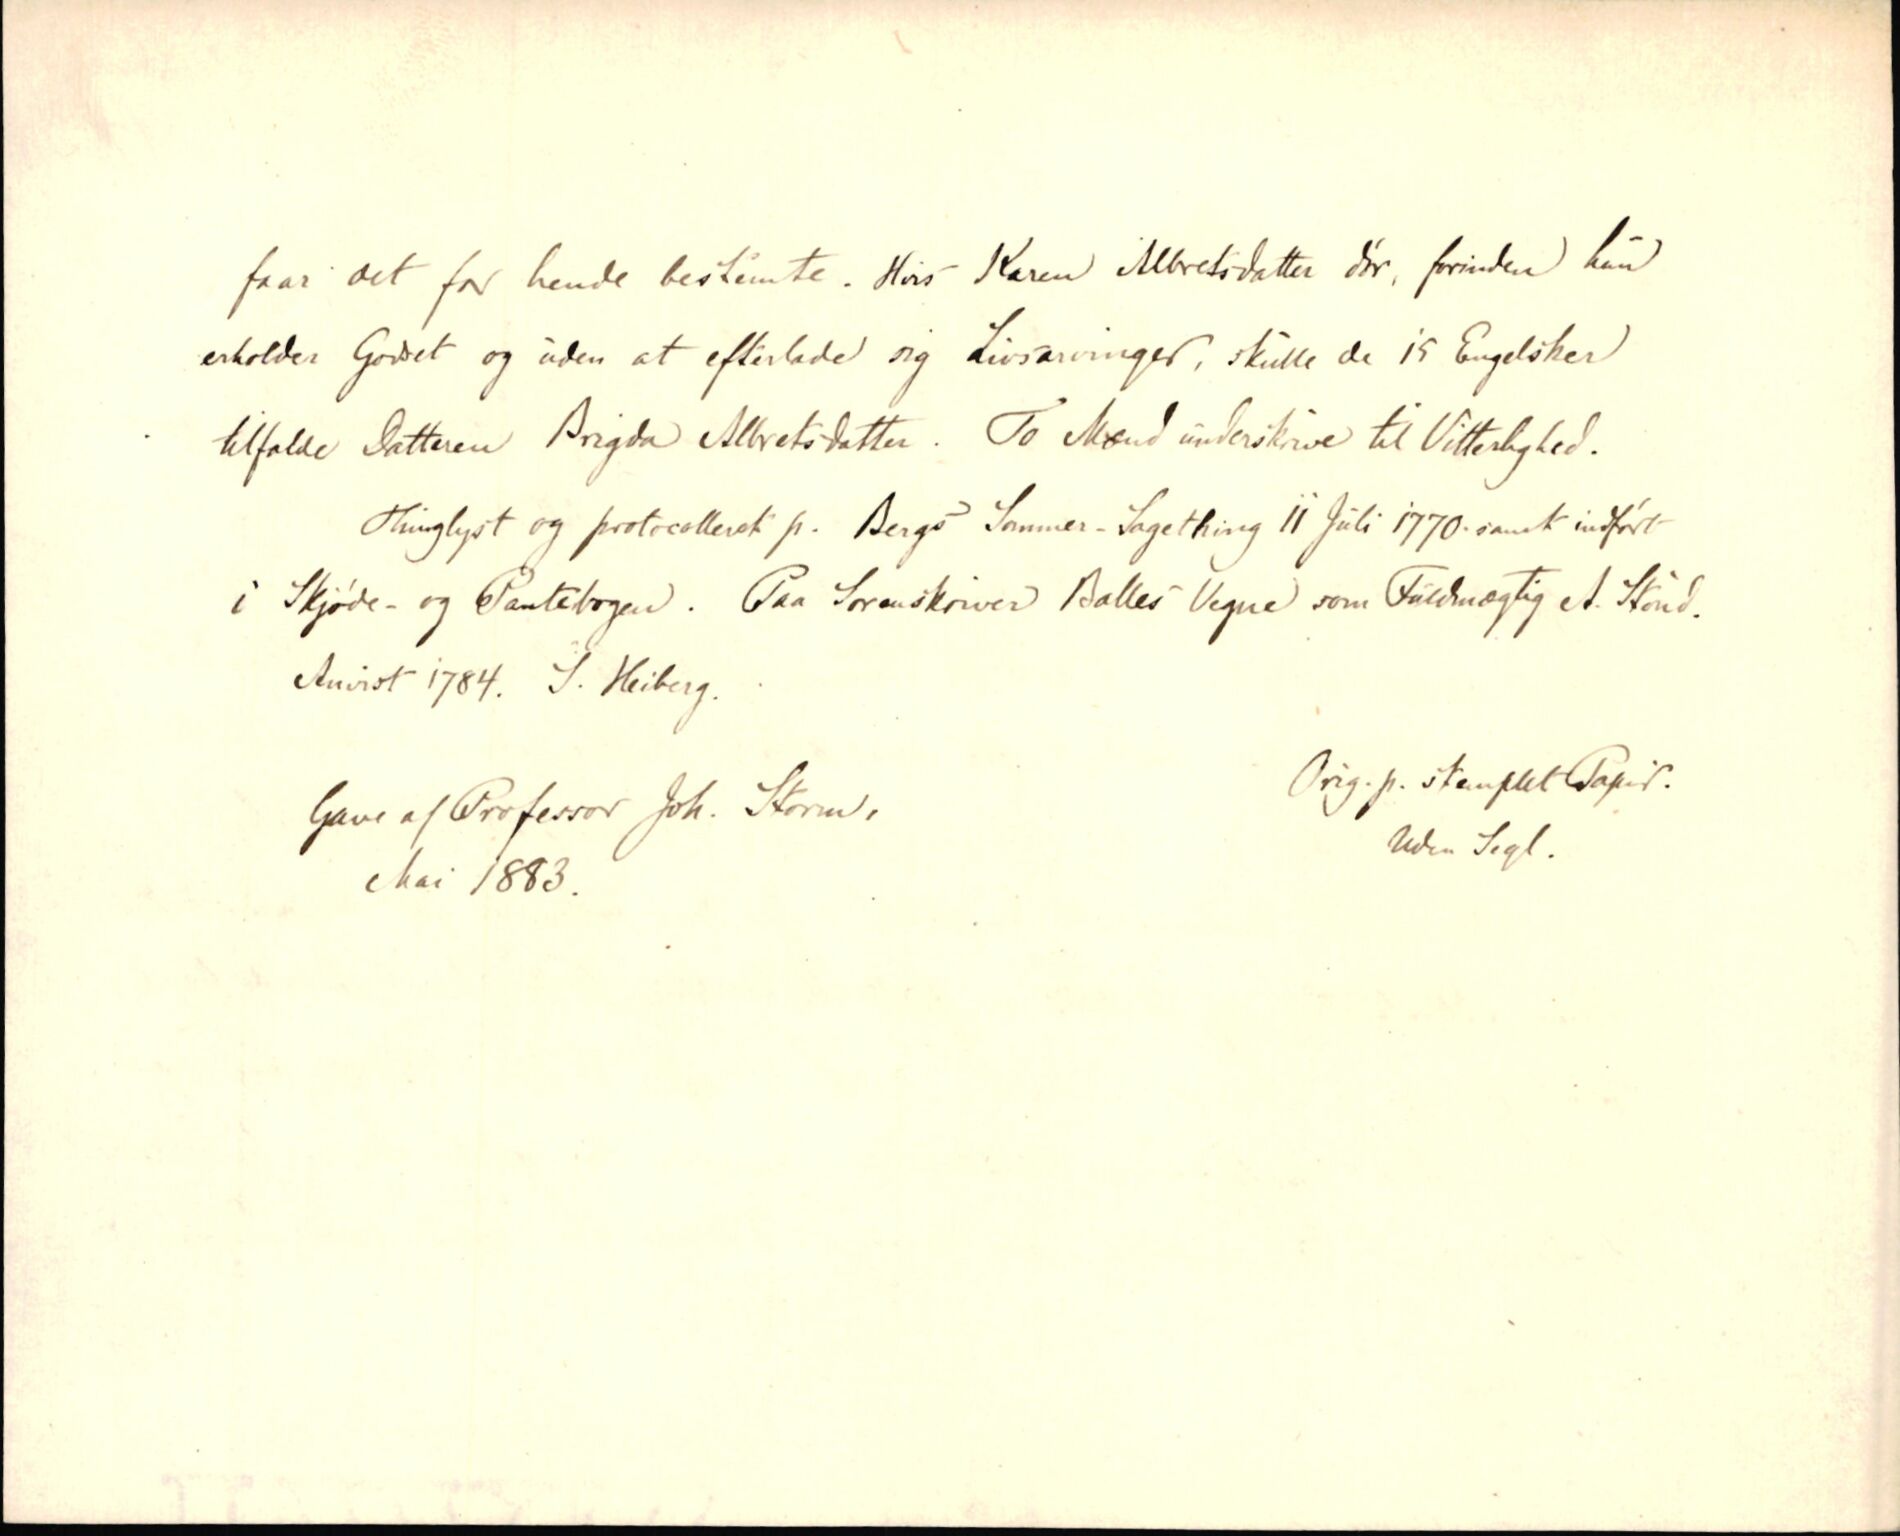 faar det for hende bestemte. Hvis Karen Albretsdatter dör, forinden hun
erholder Godset og uden at efterlade sig Livsarvinger, skulle de 15 Engelsker
tilfalde Datteren Brigda Albretsdatter. To Mænd underskrive til Vitterlighed.
Thinglyst og protocolleret p. Bergs Sommer-Sagething 11 Juli 1770. samt indført
i Skjøde- og Pantebogen. Paa Sorenskriver Balles Vegne som Fuldmægtig A. Stönd.
Anvist 1784. S. Heiberg.
Orig. p. stemplet Papir.
Uden Segl.
Gave af Professor Joh. Storm,
Mai 1883.